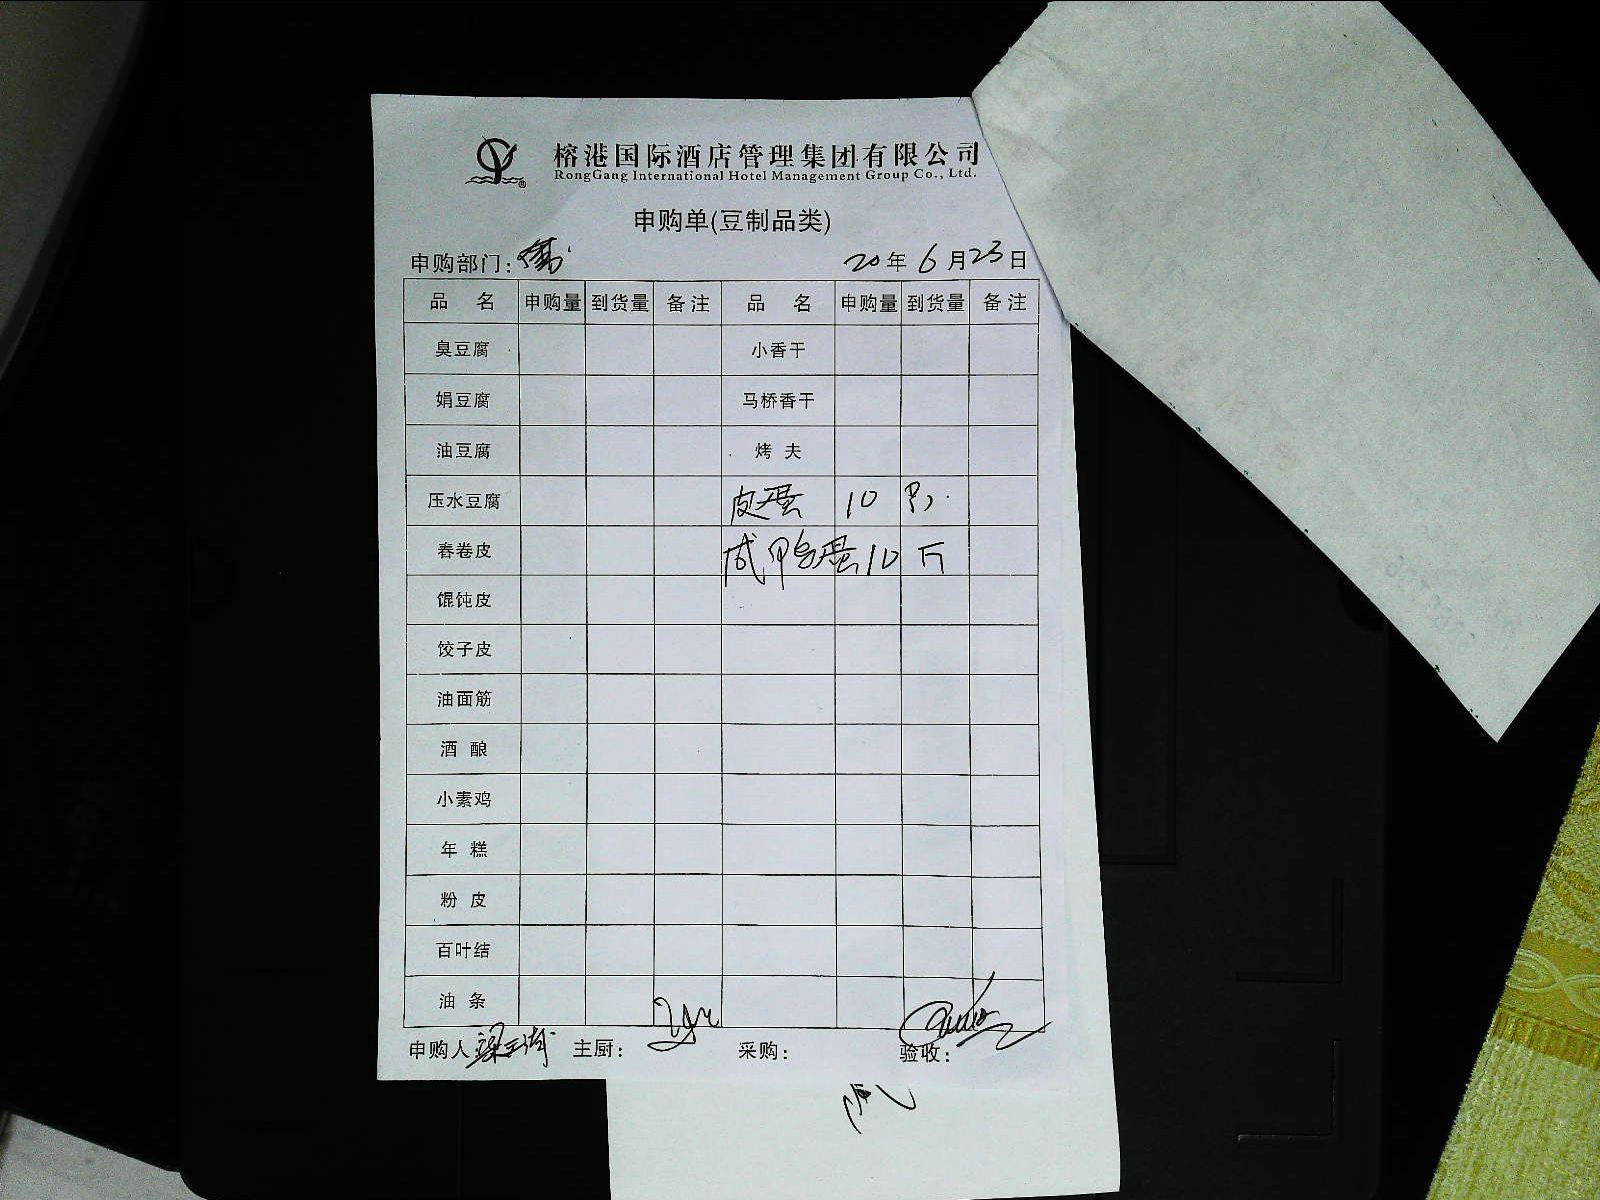 榕港国际酒店管理集团有限公司
RongGang International Hotel Management Group Co., Ltd.
申购单(豆制品类)
申购部门: 20年6月23日
品 名 申购量 到货量 备注 品 名 申购量 到货量 备注
臭豆腐 小香干
娟豆腐 马桥香干
油豆腐 烤 夫
压水豆腐 皮蛋 10
春卷皮 咸鸭蛋 10 斤
馄饨皮
饺子皮
油面筋
酒 酿
小素鸡
年 糕
粉 皮
百叶结
油 条
申购人 主厨: 采购: 验收: